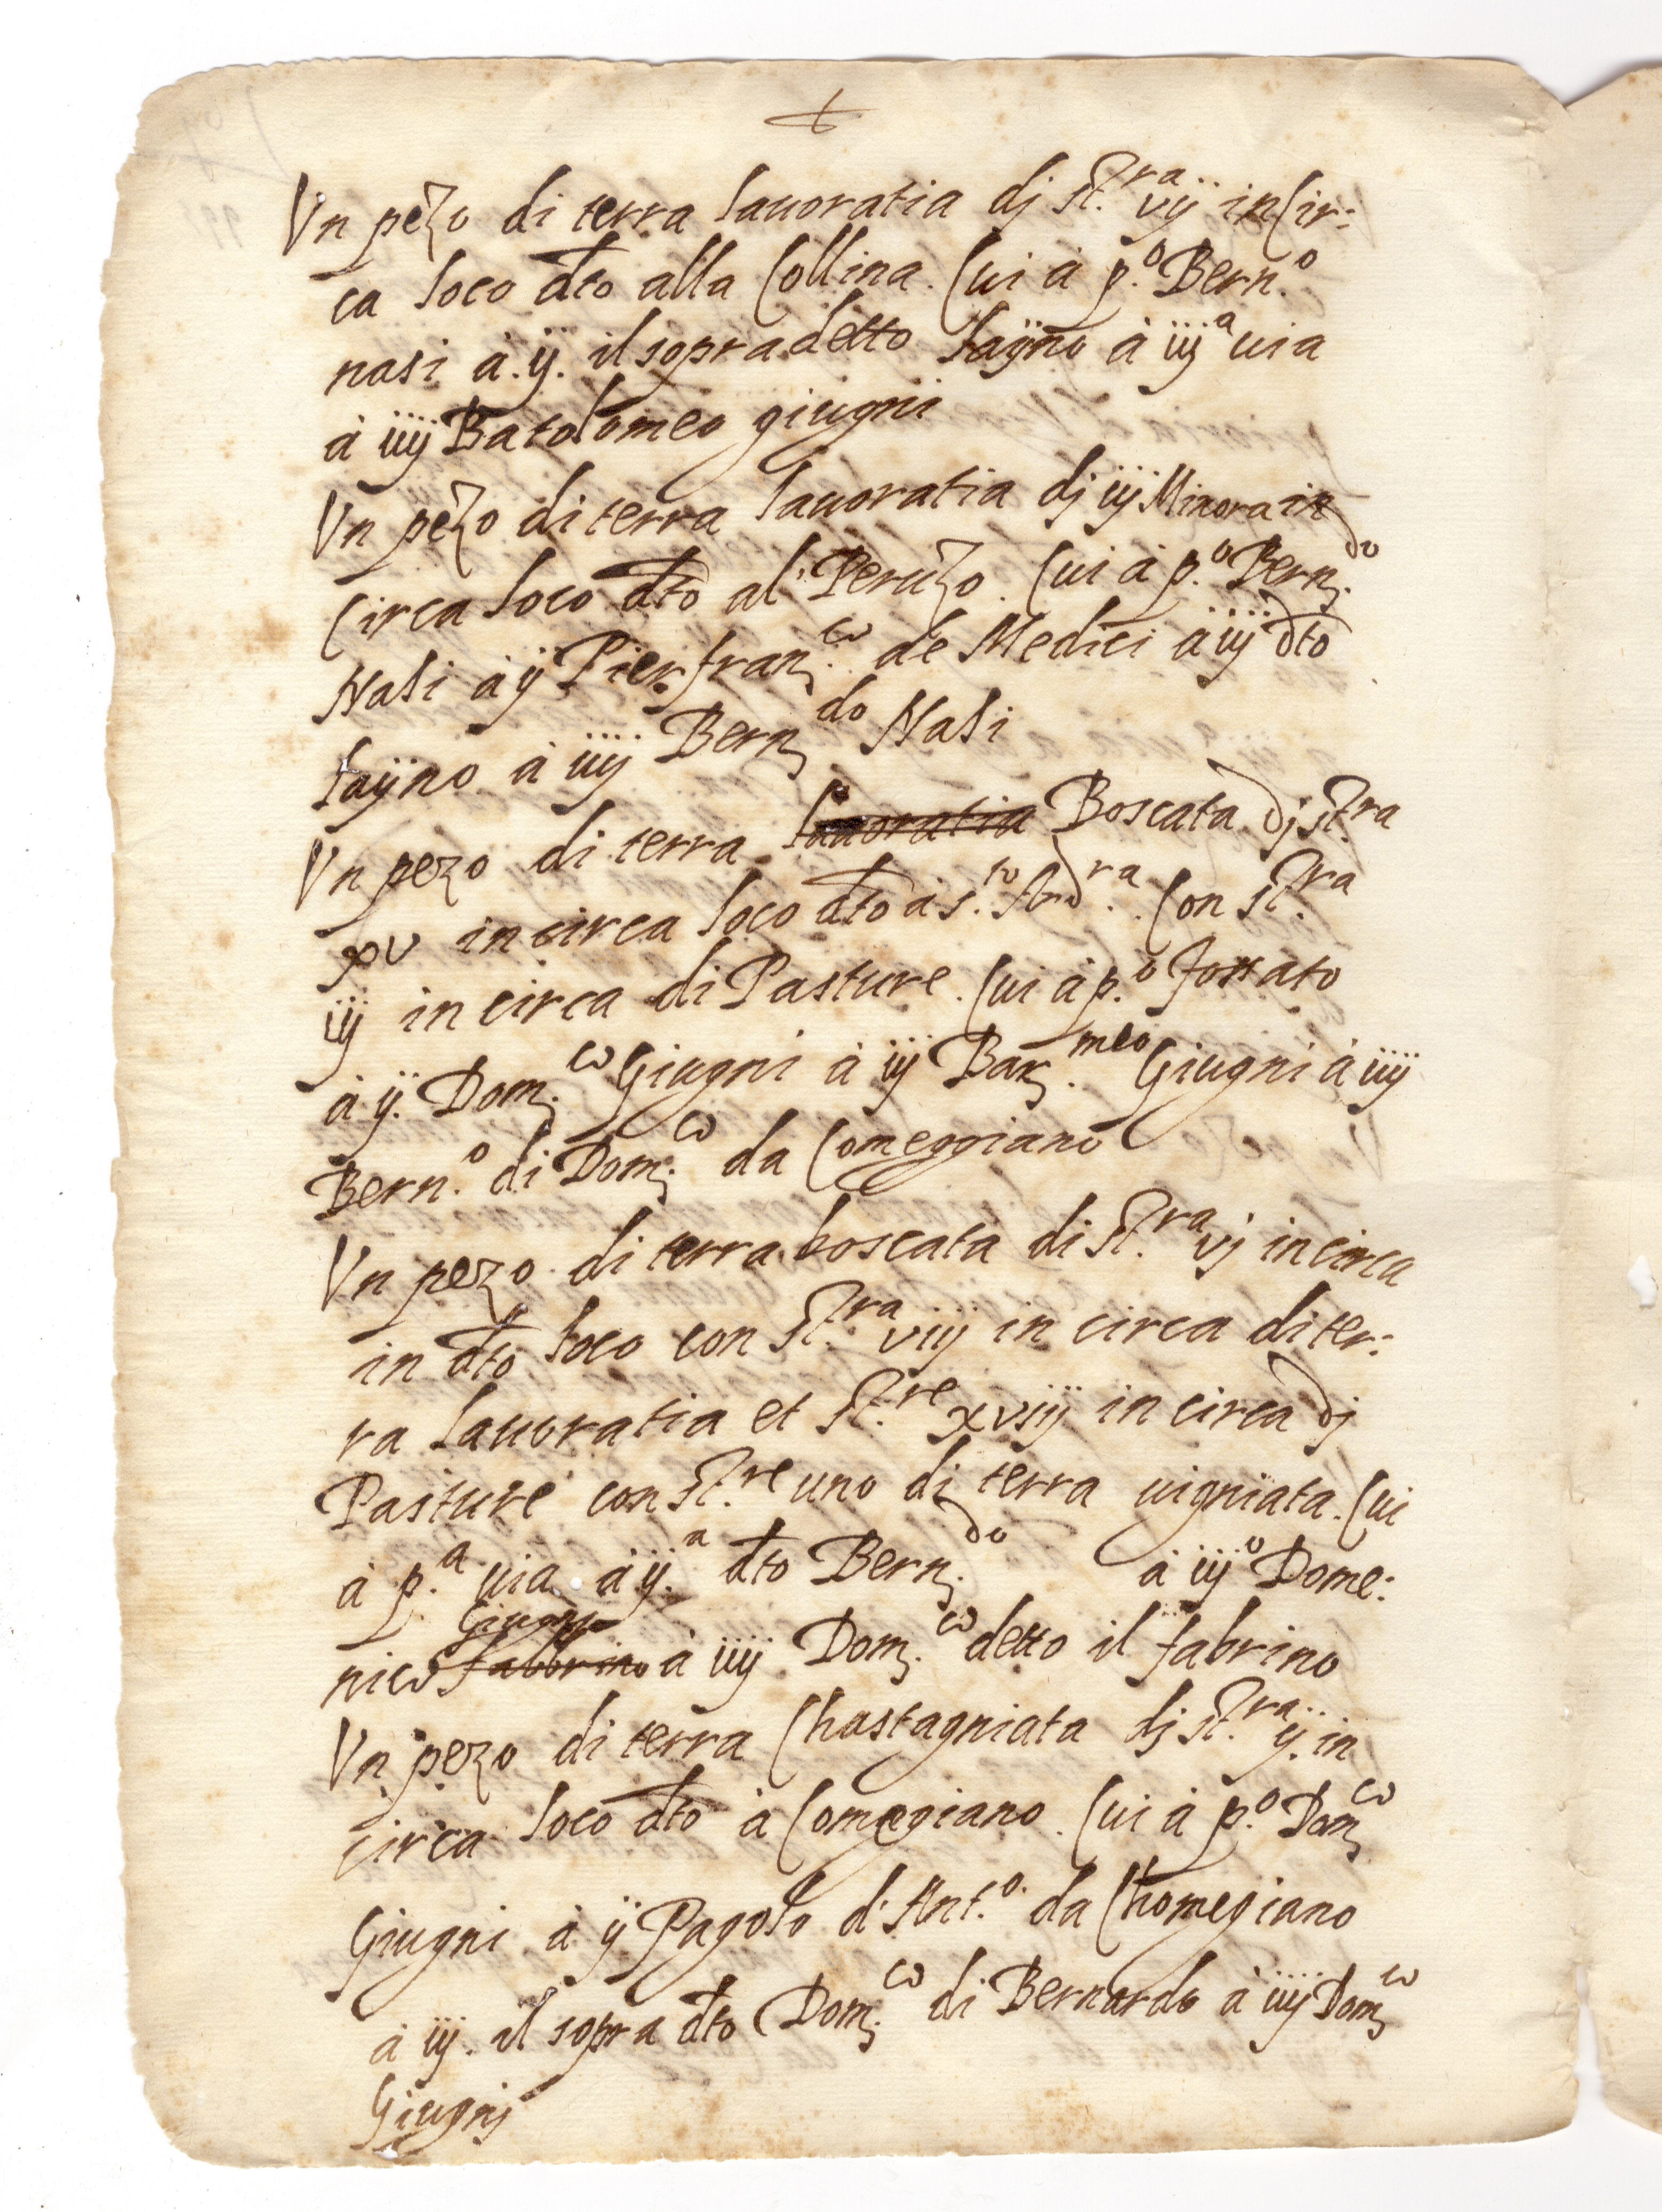 Vn pezo di terra lauoratia dj st.ra vij in Cir:
ca loco dto alla Collina. Cui à p.o Bern.o
nasi à .ij. il sopradetto layno à iij a uia
à iiij Batolomeo giugni
Vn pezo di terra lauoratia dj iij Minora in
Circa loco dto al Peruzo. Cui à p.o Bern.do
Nasi à ij Pierfran.co de Medici à iij dto
layno à iiij Bern do Nasi
Vn pezo di terra lauoratia Boscata dj st.ra
xv in circa loco dto à s.to And.ra. Con st.ra
iij in circa di Pasture. Cui à p.o fossato
à ij. Dom.co Giugni à iij Bar.meo Giugni à iiij
Bern.o di Dom.co da Comeggiano
Vn pezo di terra boscata di st.ra vj in circa
in dto loco con st.ra viij in circa di ter:
ra lauoratia et st.re xviij in circa dj
Pasture con st.re uno di terra uigniata. Cui
à p.a uia à ij.a dto Bern.do à iij o Dome:
Giugni
nico fabbrino à iiij Dom.co detto il fabrino
Vn pezo di terra Chastagniata dj st.ra ij. in
circa loco dto à Comegiano. Cui à p.o Dom co
Giugni à ij Pagolo d'Ant.o da Chomegiano
à iij. il sopra dto Dom.co di Bernardo à iiij Dom co
Giugnj